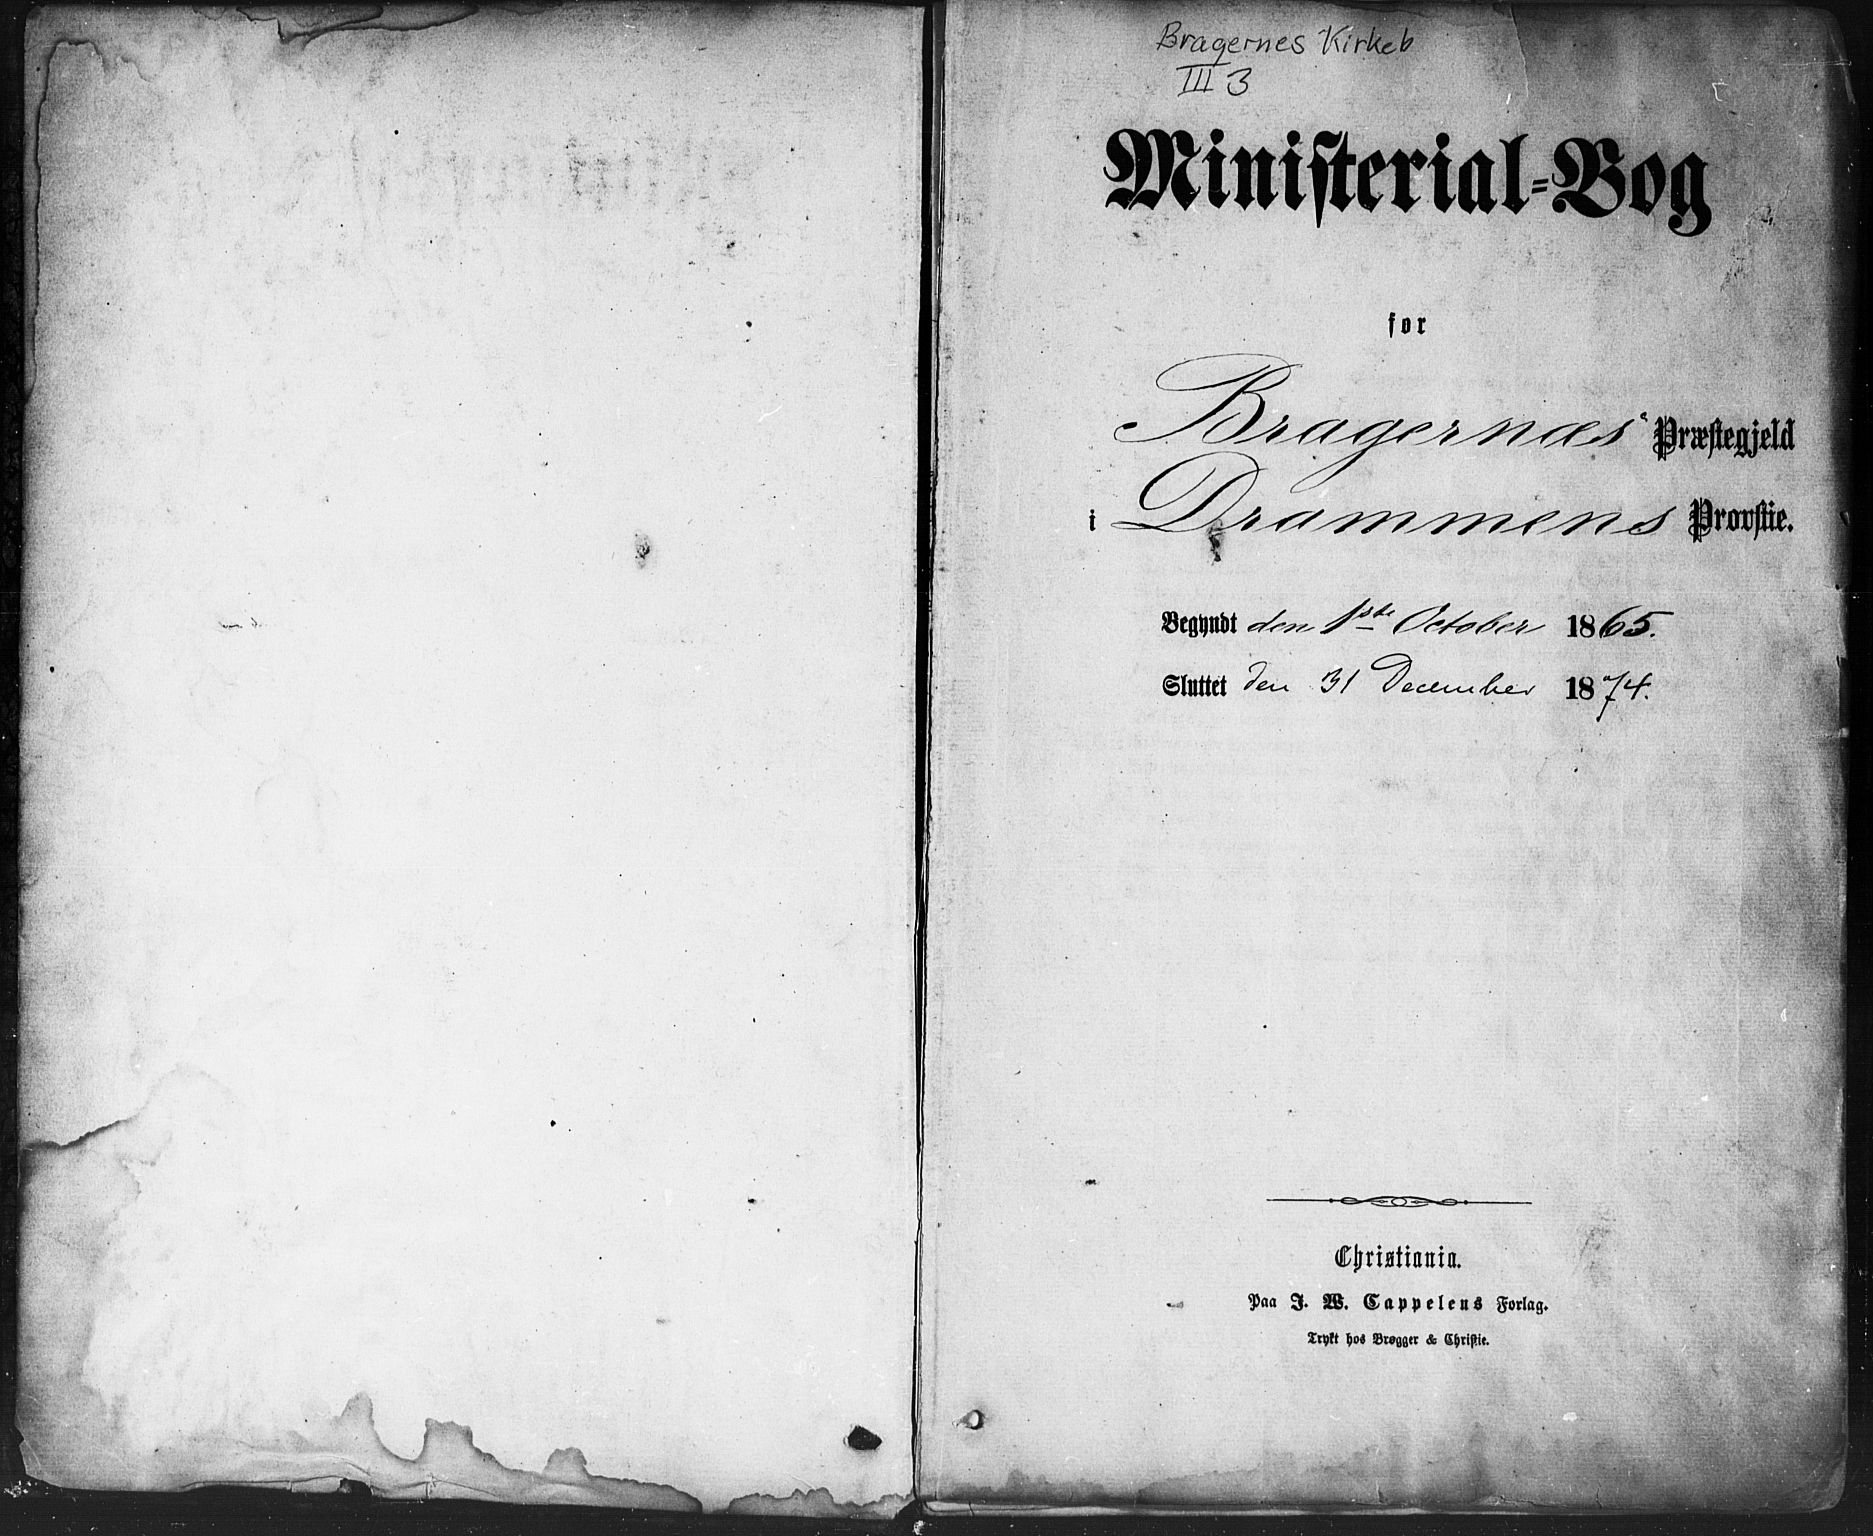 Bragernes Kirkeb
III 3
Ministerial-Bog
for
Bragernæs Præstegjeld
i Drammens Provstie.
Begyndt den 1ste October 1865.
Sluttet den 31 December 1874.
Christiania.
Paa J. W. Cappelens Forlag.
Trykt hos Brøgger & Christie.